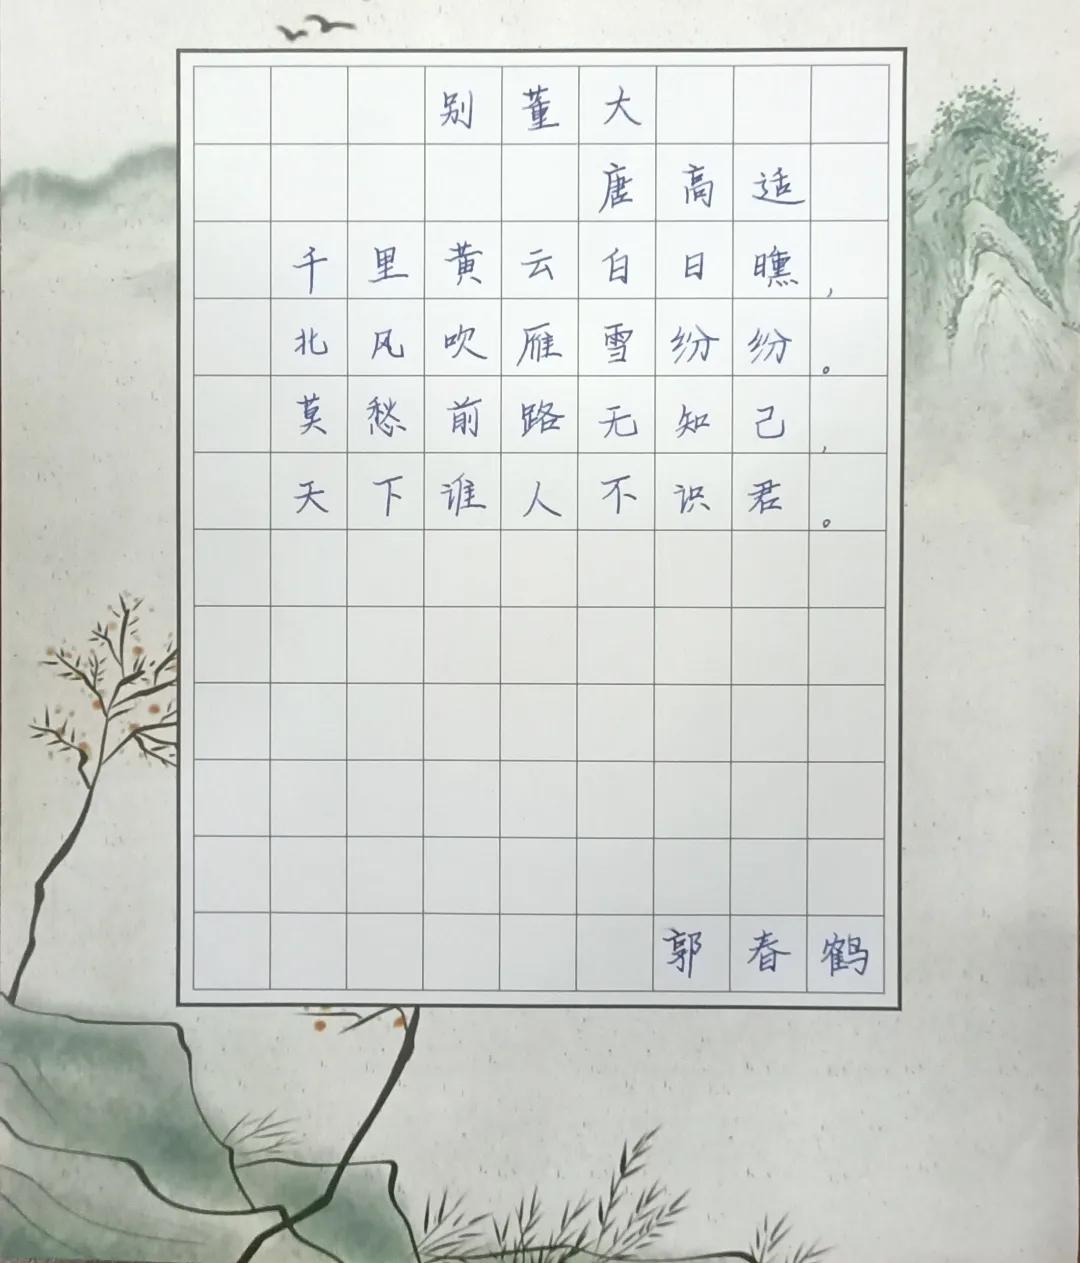 别董大
唐高适
千里黄云白日曛，
北风吹雁雪纷纷。
莫愁前路无知己，
天下谁人不识君。
郭春鹤